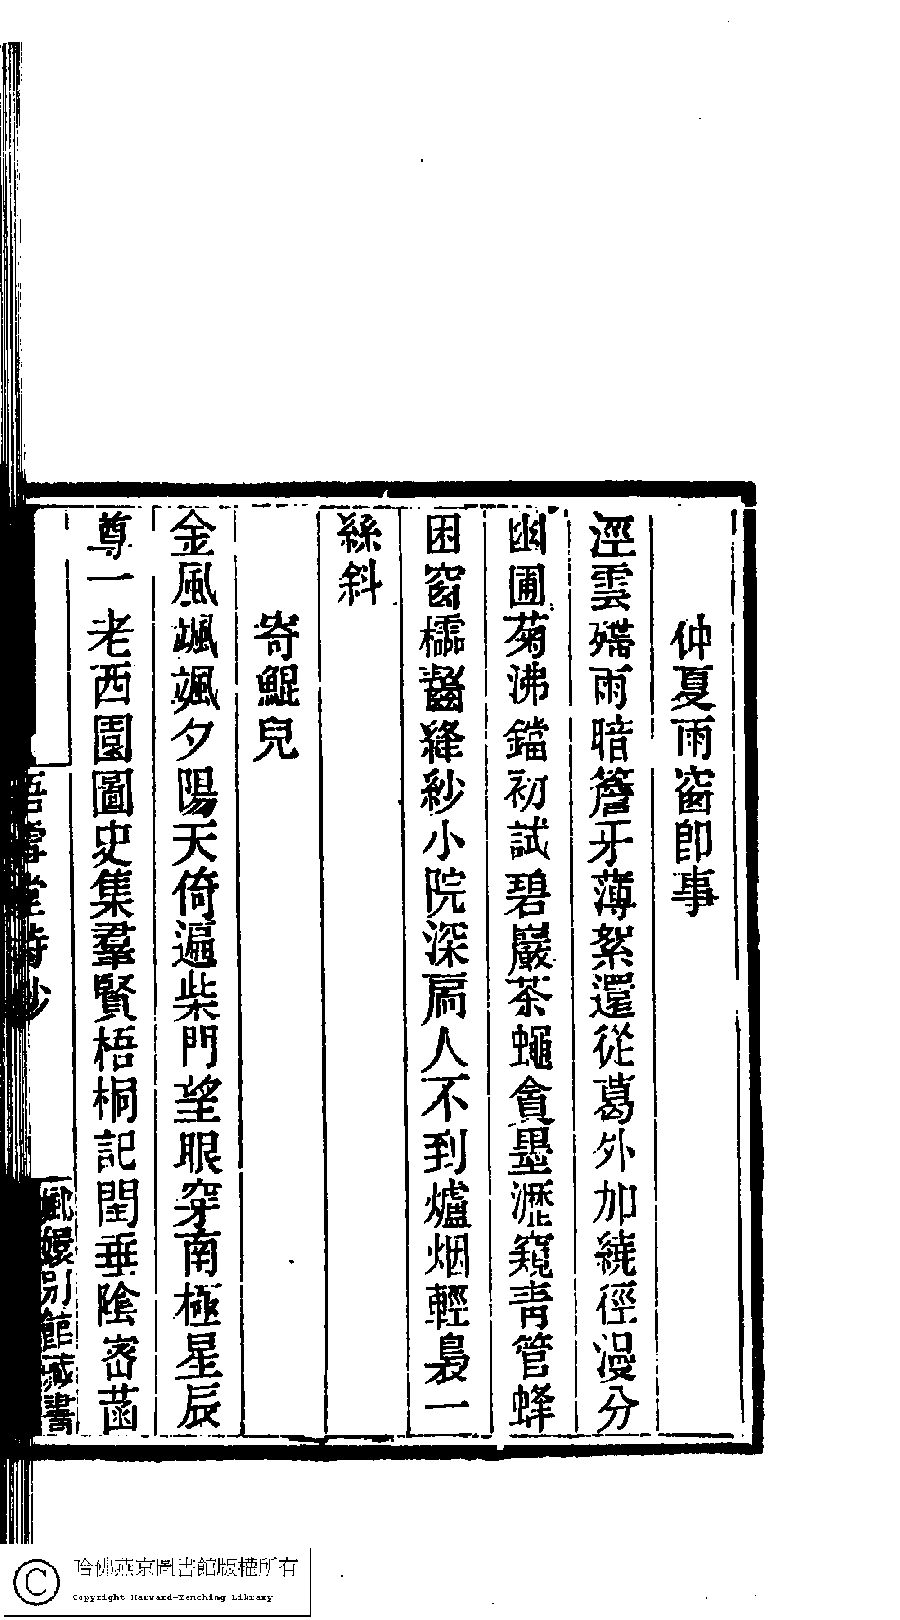 仲夏雨窗即事
溼雲殢雨暗簷牙薄絮還從葛外加繞徑漫分
幽圃菊沸鐺初試碧巖茶蠅貪墨瀝窺青管蜂
困窗櫺齧絳紗小院深扃人不到爐烟輕裊一
絲斜
寄鯤兒
金風颯颯夕陽天倚遍柴門望眼穿南極星辰
尊一老西園圖史集羣賢梧桐記閏垂陰密菡
雪堂詩鈔
嬛別館藏書
哈佛燕京圖書館版權所有
Copyright Harvard-Yenching Library